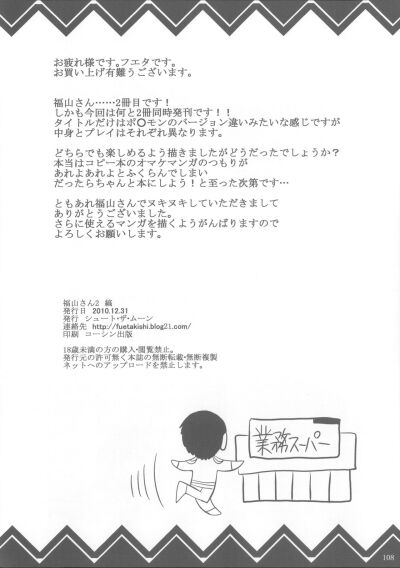 お疲れ様です。フエタです。
お買い上げ有難うございます。
福山さん……2冊目です！
しかも今回は何と2冊同時発刊です！！
タイトルだけはポ〇モンのバージョン違いみたいな感じですが
中身とプレイはそれぞれ異なります。
どちらでも楽しめるよう描きましたがどうだったでしょうか？
本当はコピー本のオマケマンガのつもりが
あれよあれよとふくらんでしまい
だったらちゃんと本にしよう！と至った次第です…
ともあれ福山さんでヌキヌキしていただきまして
ありがとうございました。
さらに使えるマンガを描くようがんばりますので
よろしくお願いします。
福山さん2 縞
発行日 2010.12.31
発行 シュート・ザ・ムーン
連絡先 http://fuetakishi.blog21.com/
印刷 コーシン出版
18歳未満の方の購入・閲覧禁止。
発行元の許可無く本誌の無断転載・無断複製
ネットへのアップロードを禁止します。
業務スーパー
108